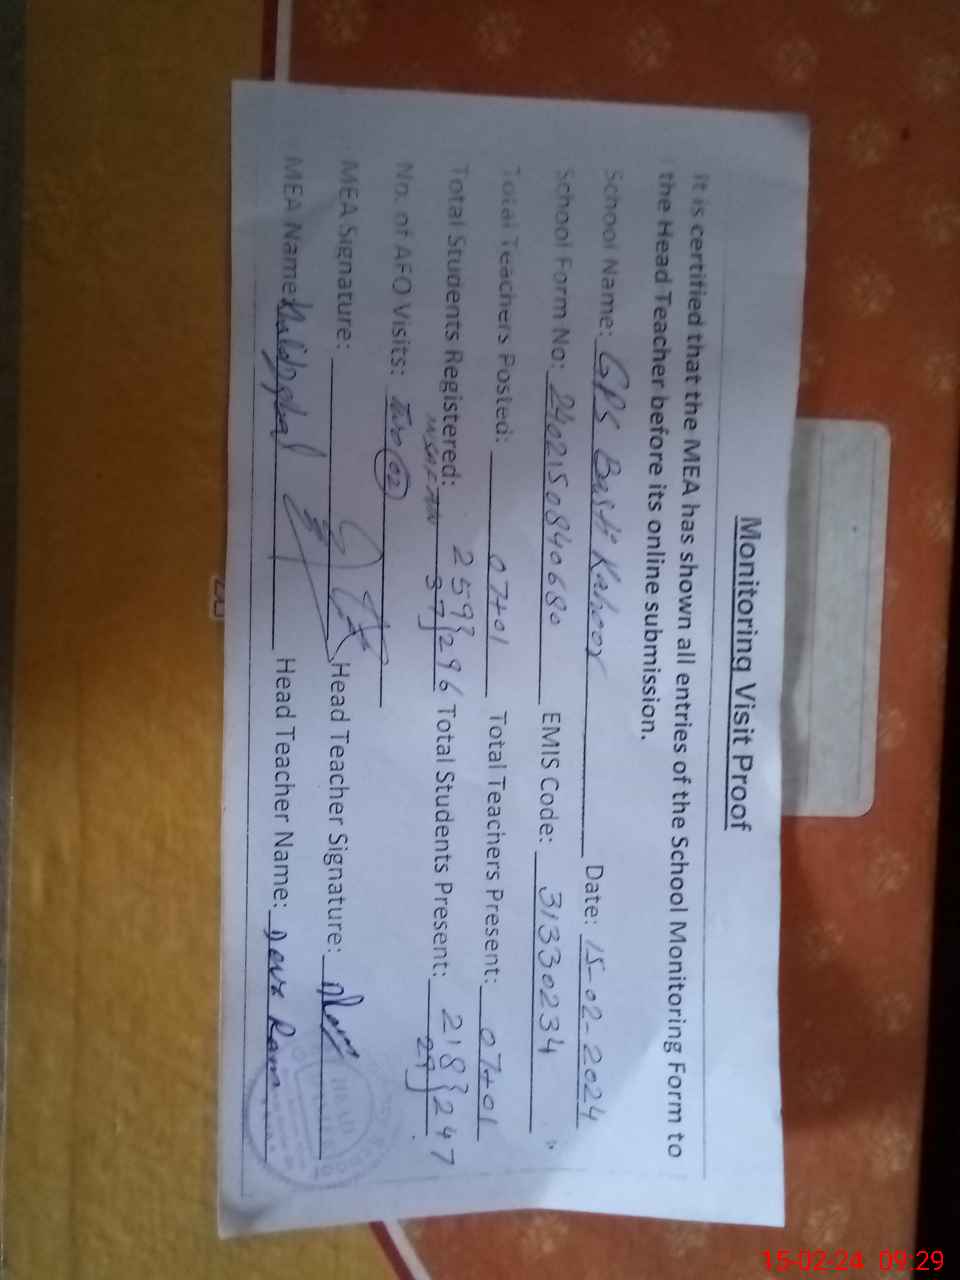 Monitoring Visit Proof
It is certified that the MEA has shown all entries of the School Monitoring Form to
the Head Teacher before its online submission.
School Name: GPS Basti Kahoor Date: 15-02-2024
School Form No: 2402150840680 EMIS Code: 31330234
Total Teachers Posted: 07+01 Total Teachers Present: 07+01
Total Students Registered: 259 } 296 Total Students Present: 218 } 247
INSAF AN 37 29
No. of AEO Visits: Two (02)
MEA Signature: Head Teacher Signature:
MEA Name Head Teacher Name: Ram
HEAD
15-02-24 09:29